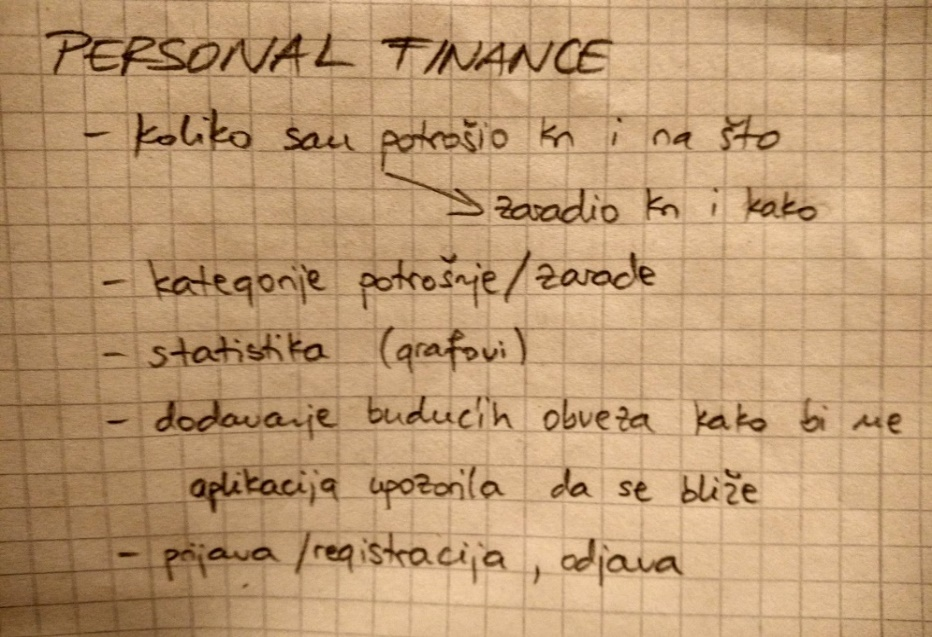 PERSONAL FINANCE
- koliko sam potrošio kn i na što
zaradio kn i kako
- kategorije potrošnje/zarade
- statistika (grafovi)
- dodavanje budućih obveza kako bi me
aplikacija upozorila da se bliže
- prijava/registracija, odjava